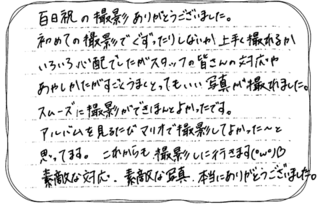 百日祝の撮影ありがとうございました。
初めての撮影でぐずったりしないか上手く撮れるか
いろいろ心配でしたがスタッフの皆さんの対応や
あやしかたがすごくうまくとってもいい写真が撮れました。
スムーズに撮影ができほんとよかったです。
アルバムを見るたびマリオで撮影してよかった〜と
思ってます。これからも撮影しに行きます(^ω^)♡
素敵な対応、素敵な写真、本当にありがとうございました。